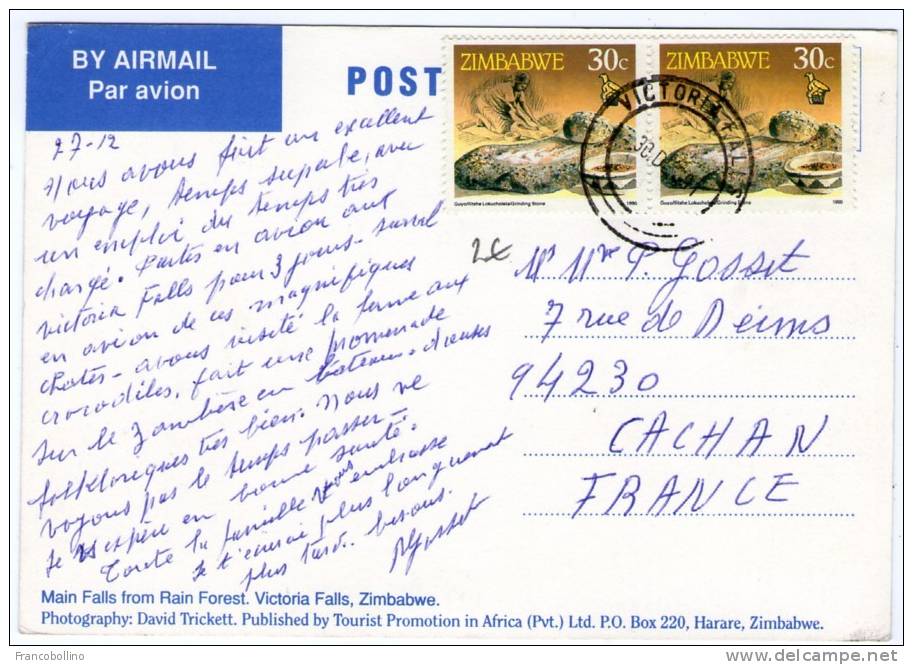 BY AIRMAIL
Par avion
POST
ZIMBABWE 30c
ZIMBABWE 30c
Guyo/Ilitshe Lokucholela/Grinding Stone 1990
Guyo/Ilitshe Lokucholela/Grinding Stone 1990
VICTORIA FALLS
30 D
27-12
Nous avons fait un excellent
voyage, temps superbe, avec
un emploi du temps très
chargé. Partis en avion aux
Victoria Falls pour 3 jours - survol
en avion de ces magnifiques
chutes - avons visité la ferme aux
crocodiles, fait une promenade
sur le Zambèze en bateau - danses
folkloriques très bien. Nous ne
voyons pas le temps passer -
Je vs espère en bonne santé.
Toute la famille vous embrasse
Je t'écrirai plus longuement
plus tard. bisous.
Gosset
2€
Mr Mme P. Gosset
7 rue de Reims
94230
CACHAN
FRANCE
Main Falls from Rain Forest. Victoria Falls, Zimbabwe.
Photography: David Trickett. Published by Tourist Promotion in Africa (Pvt.) Ltd. P.O. Box 220, Harare, Zimbabwe.
Francobollino
delcampe.net